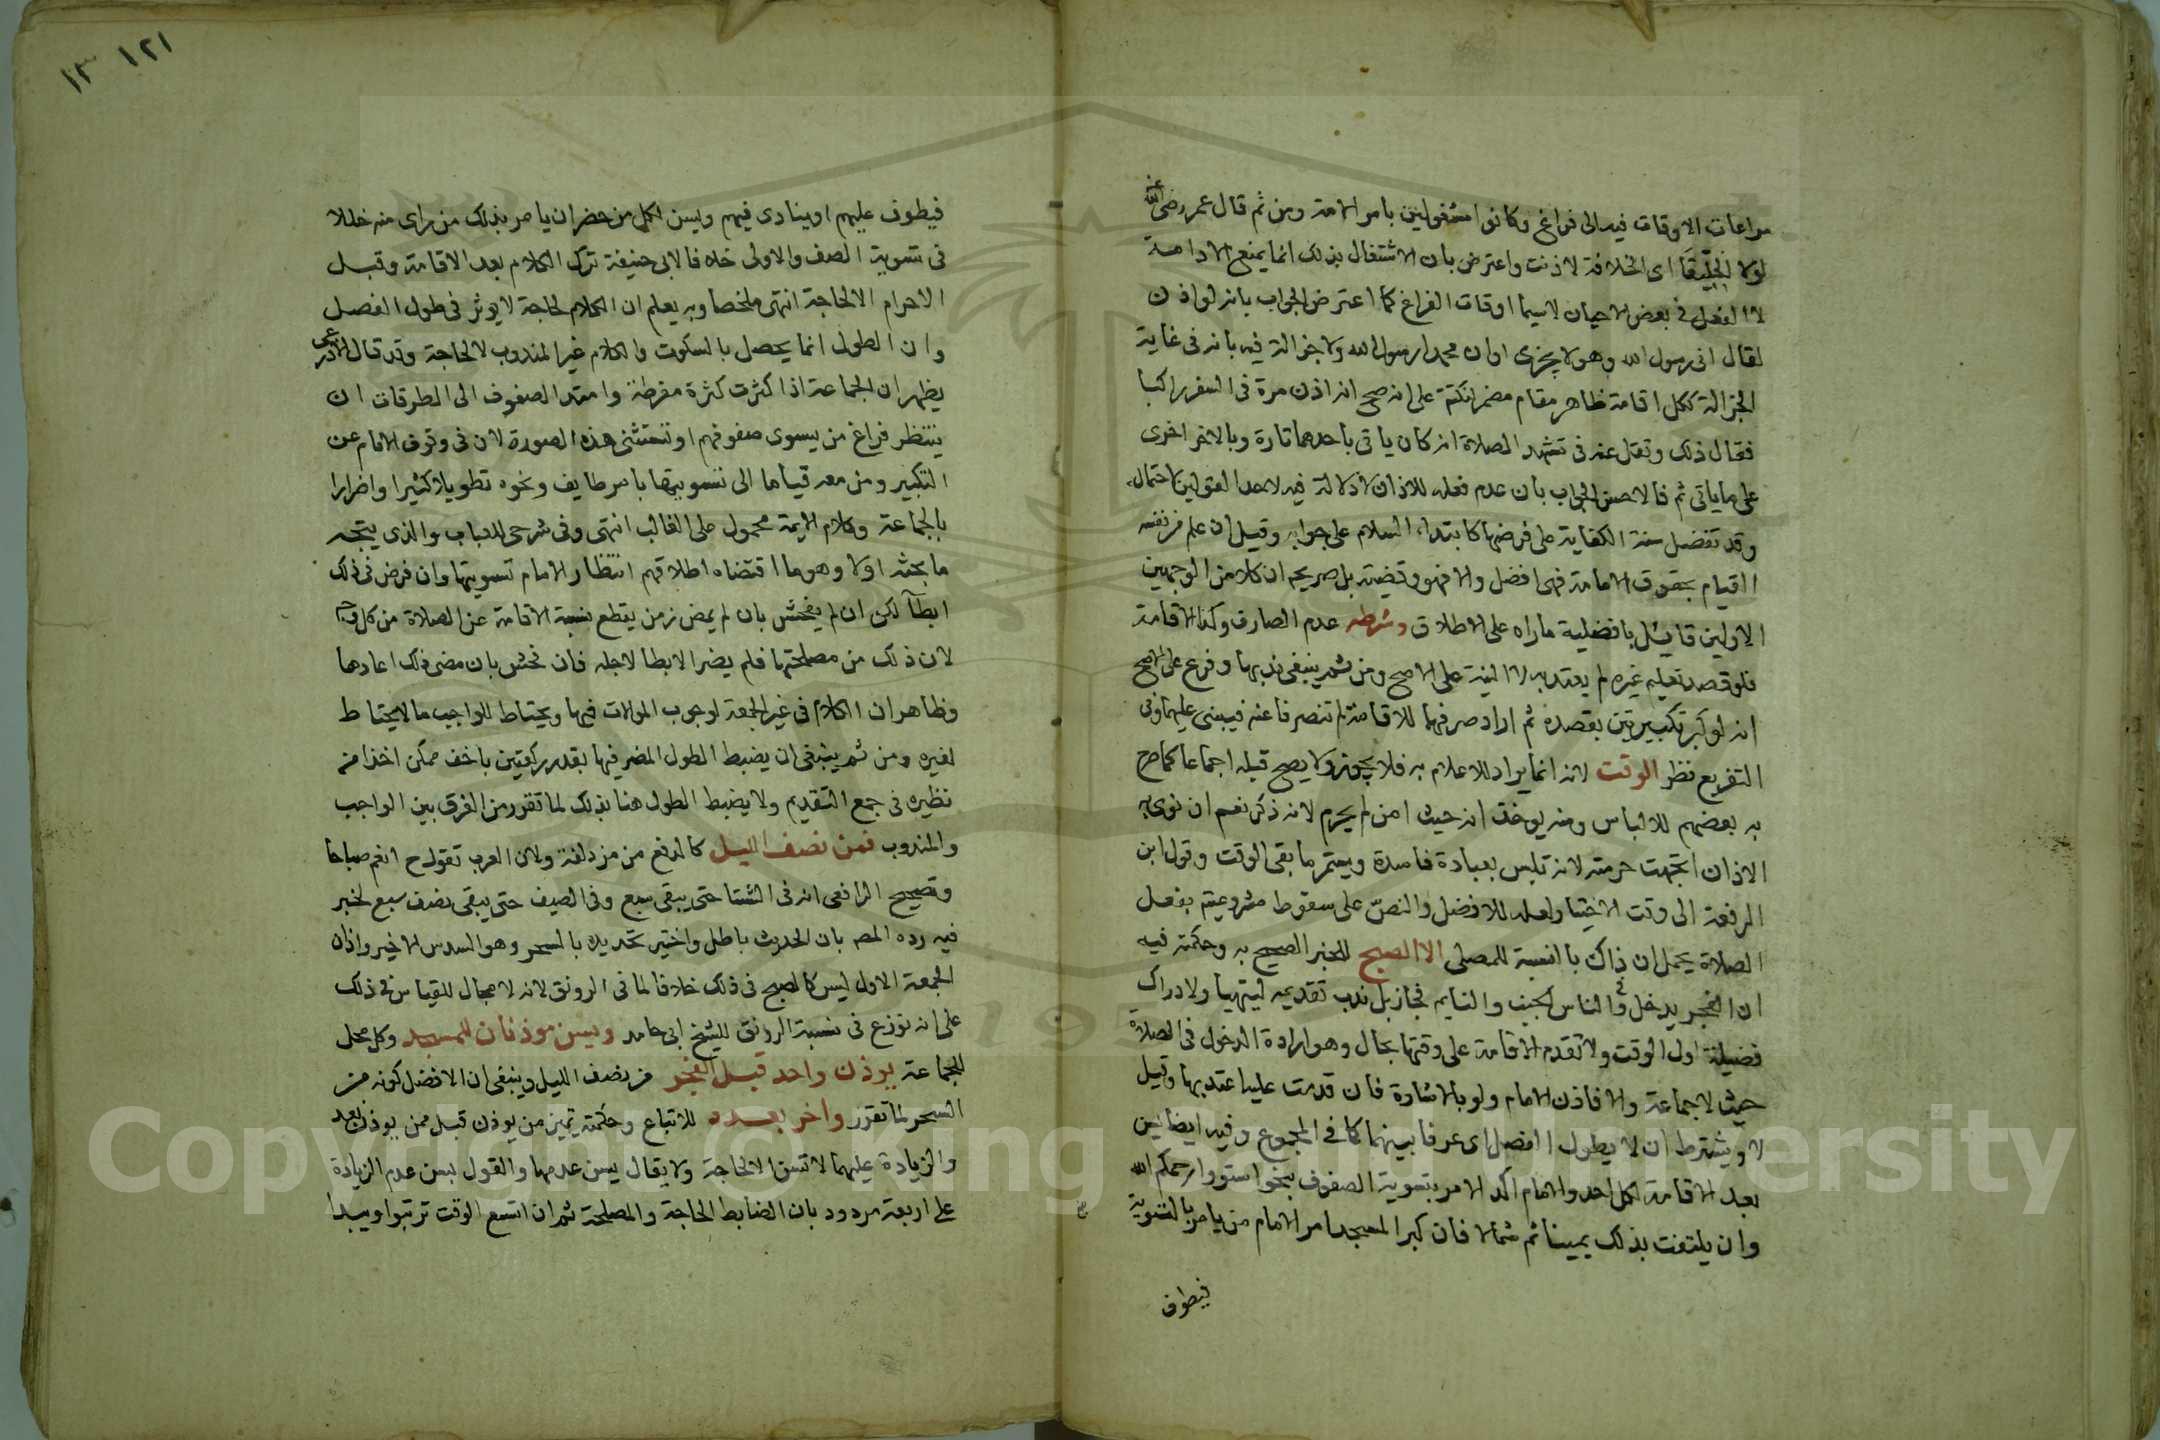 مراعات الاوقات فيه الى فراغ وكانوا مشغولين بامر الامة ومن ثم قال عمر رضي الله عنه
لولا الخليفا اى الخلافة لاذنت واعترض بان الاشتغال بذلك انما يمنع الادامة
لا الفعل في بعض الاحيان لاسيما اوقات الفراغ كما اعترض الجواب بانه لو اذن
لقال انى رسول الله وهو لا يجزى او ان محمدا رسول الله ولا جزالة فيه بانه فى غاية
الجزالة ككل اقامة ظاهر مقام مضمر لنكتة على انه صح انه اذن مرة فى السفر راكبا
فقال ذلك ونقل عنه فى تشهد الصلاة انه كان ياتى باحدهما تارة وبالاخر اخرى
على ما ياتى ثم فالاحسن الجواب بان عدم فعله للاذان لا دلالة فيه لاحد القولين لاحتماله
وقد تفضل سنة الكفاية على فرضها كابتداء السلام على جوابه وقيل ان علم من نفسه
القيام بحقوق الامامة فهى افضل والا فهو وقضيته بل صريحه ان كلا من الوجهين
الاولين قايئل بافضلية ماراه على الاطلاق وشرطه عدم الصارف وكذا الاقامة
فلو قصد تعليم غيره لم يعتد به لا النية على الاصح ومن ثم ينبغى ندبها وفرع على الاصح
انه لو كبر تكبيرتين بقصده ثم اراد صرفهما للاقامة لم تنصرفا عنه فيبنى عليهما وفى
التفريع نظر الوقت لانه انما يراد للاعلام به فلا يجوز ولا يصح قبله اجماعا كما صرح
به بعضهم للالباس ومنه يوخذ انه حيث امن لم يحرم لانه ذكر نعم ان نوى به
الاذان اتجهت حرمته لانه تلبس بعبادة فاسدة ويستمر ما بقى الوقت وقول ابن
الرفعة الى وقت الاختيا ولعله للافضل والنص على سقوط مشروعيته بفعل
الصلاة يحمل ان ذاك بالنسبة للمصلى الا الصبح للخبر الصحيح به وحكمته فيه
ان الفجر يدخل والناس الجنب والنايم فجاز بل ندب تقديمه ليتهيا ولادراك
فضيلة اول الوقت ولا تقدم الاقامة على وقتها بحال وهو ارادة الدخول فى الصلاة
حيث لا جماعة والا فاذن الامام ولو بالاشارة فان قدمت عليه اعتد بها وقيل
لا ويشترط ان لا يطول الفصل اى عرفا بينهما كما فى المجموع وفيه ايضا يسن
بعد الاقامة لكل احد والامام اكد الامر بتسوية الصفوف بنحو استووا رحمكم الله
وان يلتفت بذلك يمينا ثم شمالا فان كبر المسجد امر الامام من يامر بالتسوية
فيطوف
١٢١ ١٣
فيطوف عليهم او ينادى فيهم ويسن لكل من حضر ان يامر بذلك من راى منه خللا
فى تسوية الصف والاولى خلافا لابى حنيفة ترك الكلام بعد الاقامة وقبل
الاحرام الا لحاجة انتهى ملخصا وبه يعلم ان الكلام لحاجة لا يوثر فى طول الفصل
وان الطول انما يحصل بالسكوت والكلام غير المندوب لا لحاجة وقد قال الاذرعى
يظهر ان الجماعة اذا كثرت كثرة مفرطة وامتد الصفوف الى الطرقات ان
ينتظر فراغ من يسوى صفوفهم او تستثنى هذه الصورة لان فى وقوف الامام عن
التكبير ومن معه قياما الى تسويتها بامر طايف ونحوه تطويلا كثيرا واضرارا
بالجماعة وكلام الايمة محمول على الغالب انتهى وفى شرحى للعباب والذى يتجه
ما بحثه اولا وهو ما اقتضاه اطلاقهم انتظار الامام تسويتها وان فرض فى ذلك
ابطآ لكن ان لم يفحش بان لم يمض زمن يقطع نسبة الاقامة عن الصلاة من كل وجه
لان ذلك من مصلحتها فلم يضر الابطا لاجله فان فحش بان مضى ذلك اعادها
وظاهر ان الكلام فى غير الجمعة لوجوب الموالات فيها ويحتاط للواجب ما لا يحتاط
لغيره ومن ثم ينبغى ان يضبط الطول المضر فيها بقدر ركعتين باخف ممكن اخذا من
نظيره فى جمع التقديم ولا يضبط الطول هنا بذلك لما تقرر من الفرق بين الواجب
والمندوب فمن نصف الليل كالدفع من مزدلفة ولان العرب تقول ح انعم صباحا
وتصحيح الرافعى انه فى الشتا حتى يبقى سبع وفى الصيف حتى يبقى نصف سبع لخبر
فيه رده المصـ بان الحديث باطل واختير تحديده بالسحر وهو السدس الاخير واذان
الجمعة الاول ليس كالصبح فى ذلك خلافا لما فى الرونق لانه لا مجال للقياس فى ذلك
على انه نوزع فى نسبة الرونق للشيخ ابى حامد ويسن موذنان للمسجد وكل محل
للجماعة يوذن واحد قبل الفجر من نصف الليل وينبغى ان الافضل كونه من
السحر لما تقرر واخر بعده للاتباع وحكمته تميز من يوذن قبل ممن يوذن بعد
والزيادة عليهما لا تسن الا لحاجة ولا يقال يسن عدمها والقول بسن عدم الزيادة
على اربعة مردود بان الضابط الحاجة والمصلحة ثم ان اتسع الوقت ترتبوا ويبدا
Copyright © King Saud University